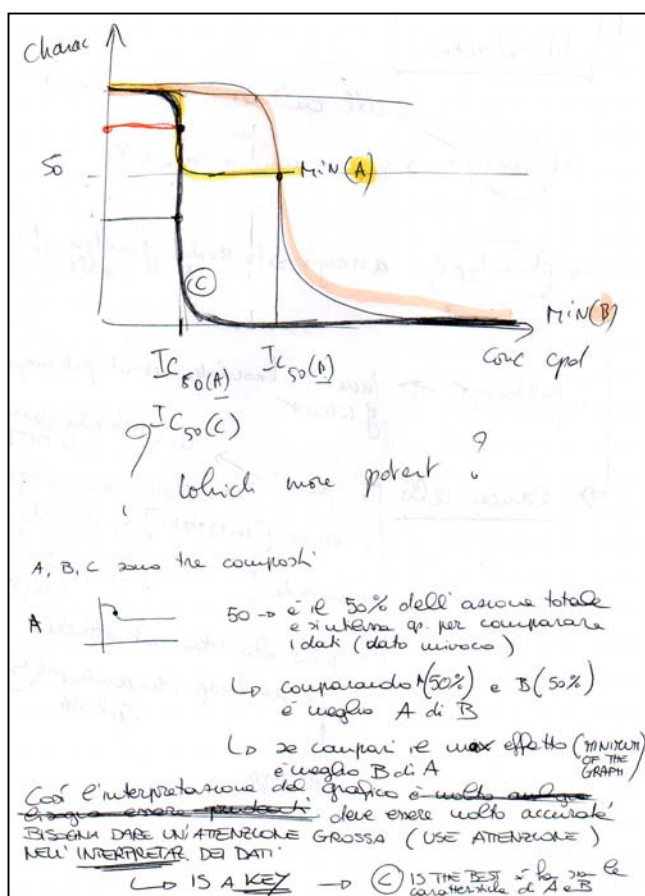 Charac
50
MIN(A)
C
MIN(B)
conc cpd
IC50(A)
IC50(B)
IC50(C)
? which more potent ?
A, B, C sono tre composti
A
50 → è il 50% dell'azione totale
per comparare
i dati (dato univoco)
↳ comparando A(50%) e B(50%)
è meglio A di B
↳ se compari il max effetto (MINIMUM OF THE GRAPH)
è meglio B di A
Così l'interpretazione del grafico è molto
bisogna essere prudenti deve essere molto accurata
BISOGNA DARE UN'ATTENZIONE GROSSA (USE ATTENZIONE)
NELL'INTERPRETAZ. DEI DATI
↳ IS A KEY → C IS THE BEST ha le
caratteristiche di A e B